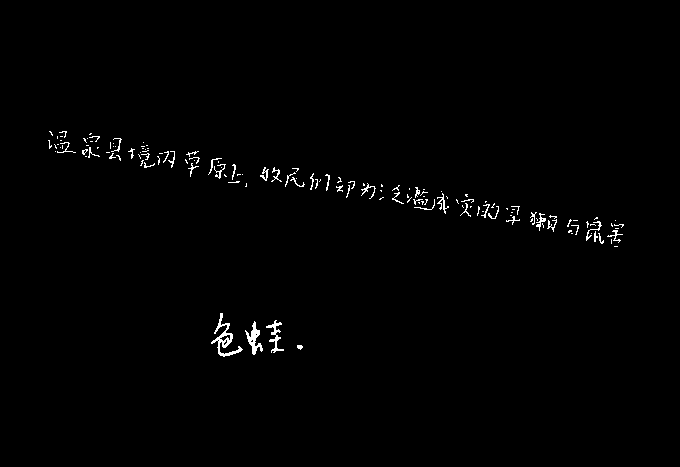 温泉县境内草原上,牧民们都为泛滥成灾的旱獭与鼠害
色蛙.